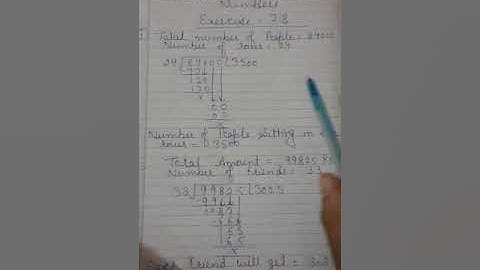 Numbers
Exercise - 3B
Total number of People = 84000
Number of rows = 24
24 ) 84000 ( 3500
72
120
120
x
00
00
x
Number of People sitting in
rows = 3500
Total Amount = 99825 Rs
Number of friends = 33
33 ) 99825 ( 3025
99
82
66
165
165
x
friend will get = 302